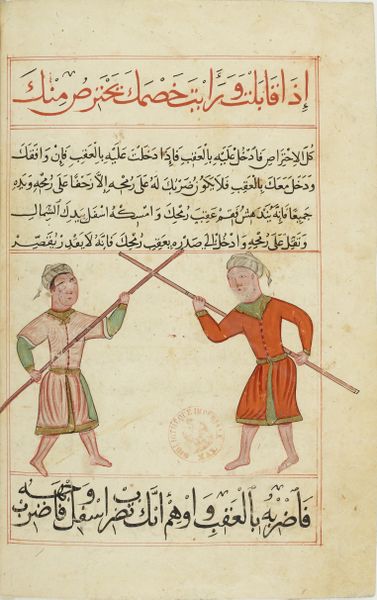 إذا قابلت ورأيت خصمك يحترص منك
كل الاحتراص فادخل عليه بالعقب فإذا دخلت عليه بالعقب فإن وافقك
ودخل معك بالعقب فلا يكون ضربك له على رمحه إلا زحفا على رمحه ويده
جميعا فإنه يندهش فعم عقب رمحك وامسكه اسفل بيدك الشمال
وثقل على رمحه وادخل إلى صدره بعقب رمحك فإنه لا يقدر يقصر
فاضربه بالعقب واوهم أنك تضرب اسفل فاضرب وجهه
BIBLIOTHEQUE IMPERIALE